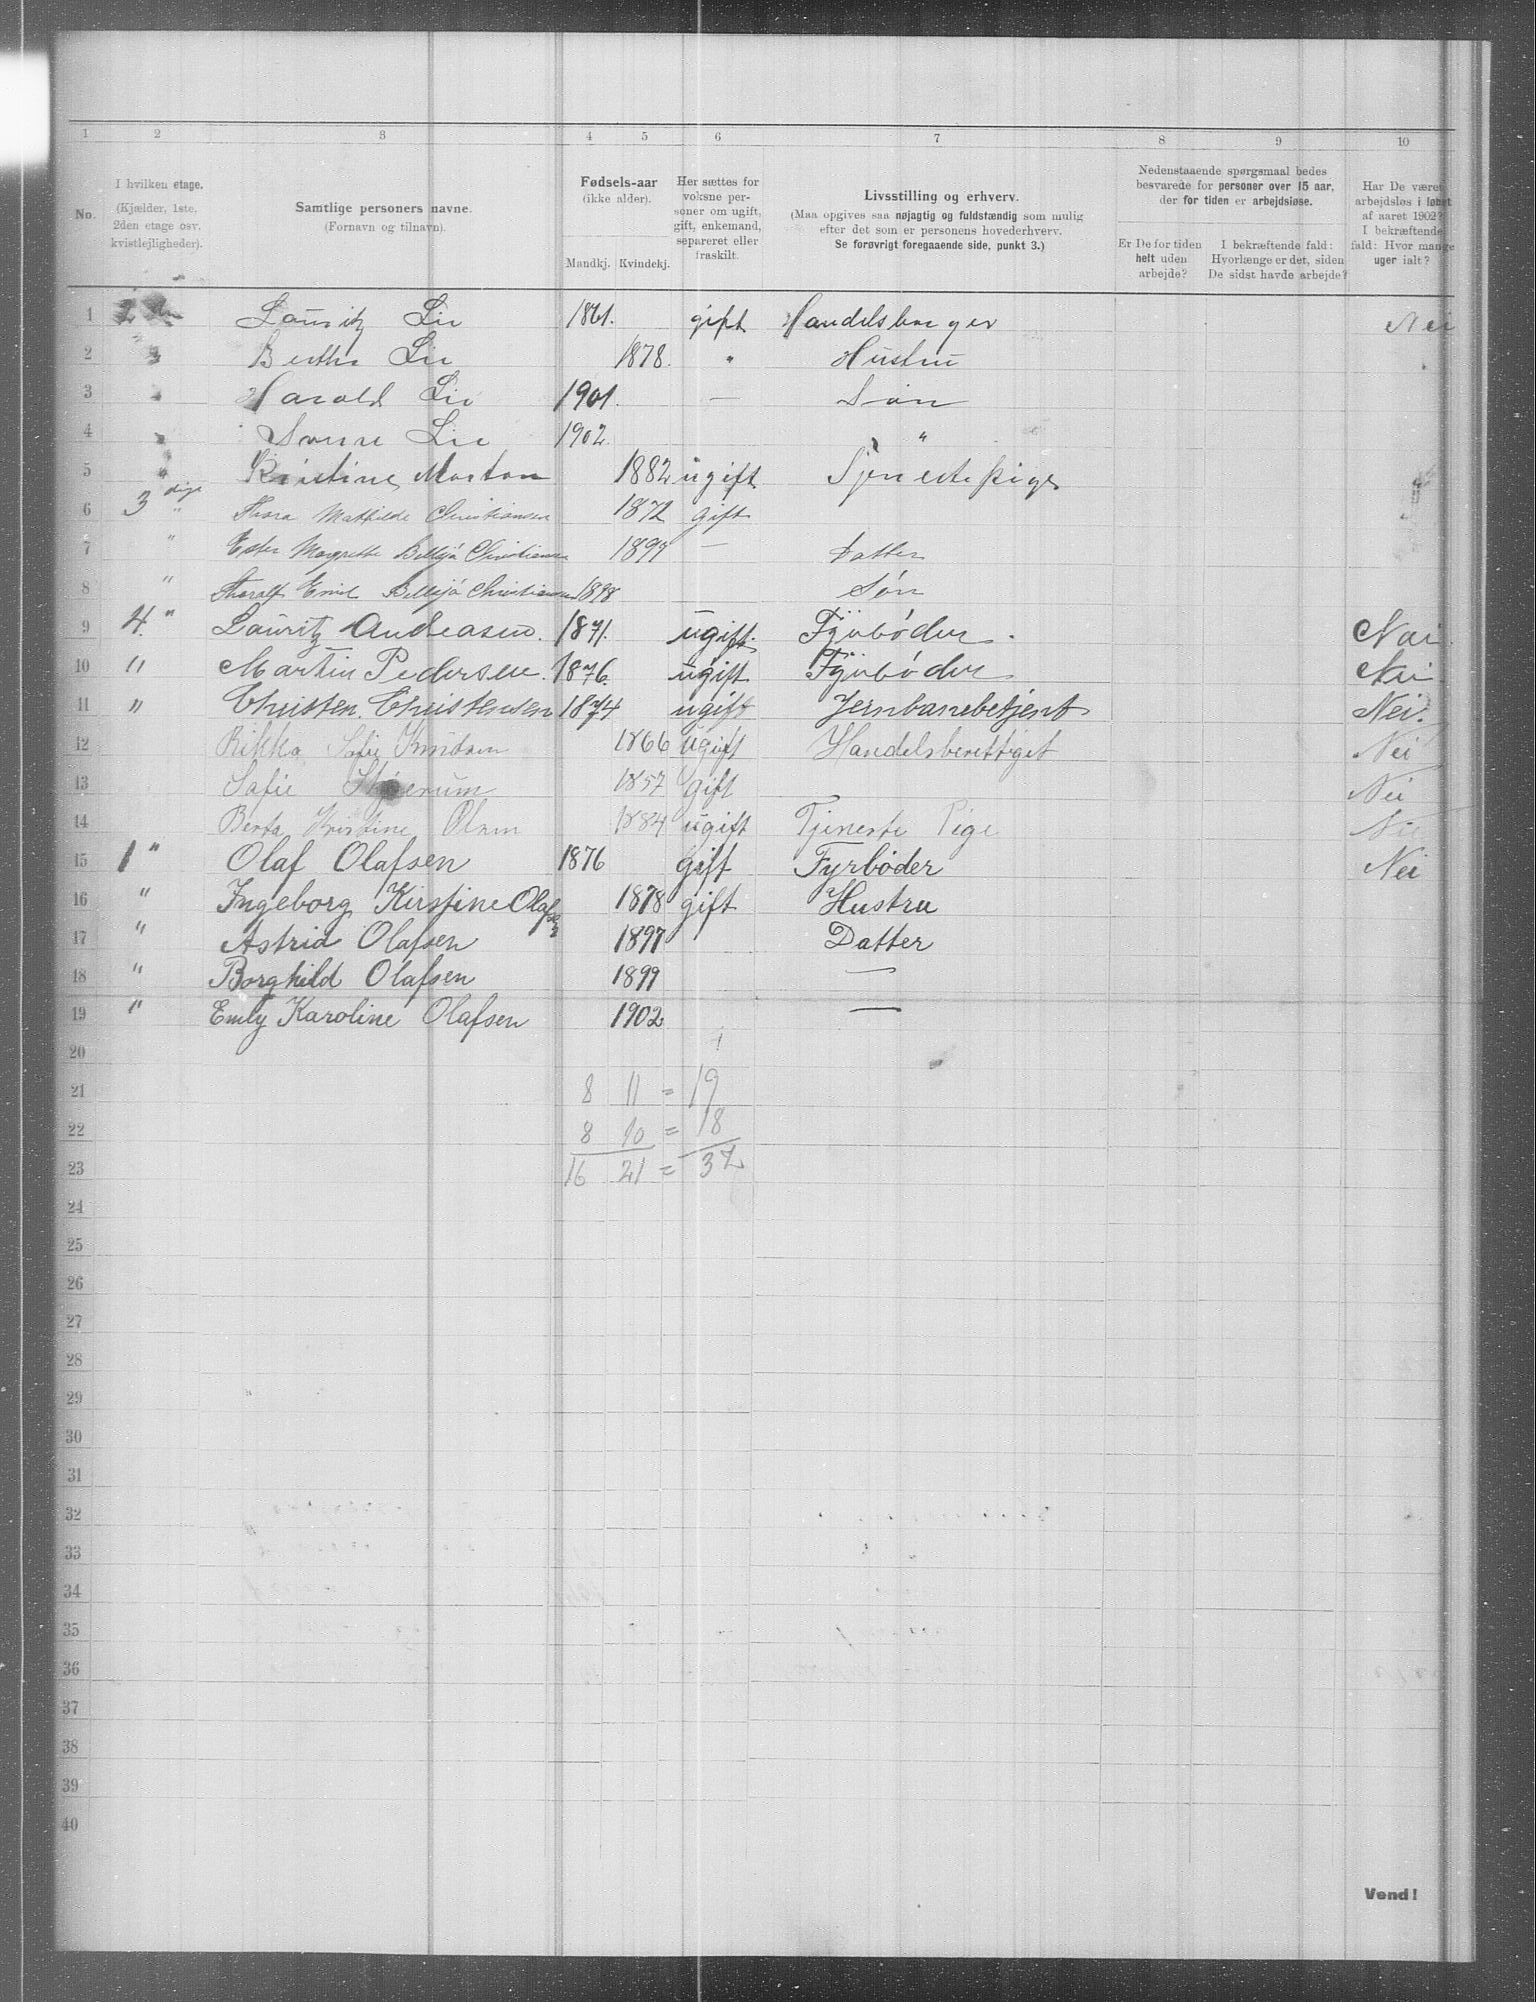 1 2 3 4 5 6 7 8 9 10
No.
I hvilken etage.
(Kjælder, 1ste,
2den etage osv.
kvistlejligheder).
Samtlige personers navne.
(Fornavn og tilnavn).
Fødsels-aar
(ikke alder).
Mandkj. Kvindekj.
Her sættes for
voksne per-
soner om ugift,
gift, enkemand,
separeret eller
fraskilt.
Livsstilling og erhverv.
(Maa opgives saa nøjagtig og fuldstændig som mulig
efter det som er personens hovederhverv.
Se forøvrigt foregaaende side, punkt 3.)
Nedenstaaende spørgsmaal bedes
besvarede for personer over 15 aar,
der for tiden er arbejdsløse.
Er De for tiden
helt uden
arbejde?
I bekræftende fald:
Hvorlænge er det, siden
De sidst havde arbejde?
Har De været
arbejdsløs i løbet
af aaret 1902?
I bekræftende
fald: Hvor mange
uger ialt?
1 2 den Lauritz Lie 1861. gift Handelsborger Nei
2 " Berthe Lie 1878. " Hustru
3 " Harald Lie 1901. — Søn
4 " Lie 1902. "
5 " Kristine Morton 1882 ugift Tjenestepige
6 3 die " Thora Mathilde Christiansen 1872 gift
7 " Ester Margrethe Christiansen 1897 — Datter
8 " Thoralf Emil Christiansen 1898 Søn
9 4. " Lauritz Andreasen. 1871. ugift. Fyrbøder. Nei.
10 " Martin Pedersen. 1876. ugift Fyrbøder Nei
11 " Christen Christensen 1874 ugift Jernbanebetjent Nei.
12 Rikka Sofie Knudsen 1866 ugift Handelsberettiget Nei
13 Sofie 1857 gift Nei
14 Berta Kristine Olsen 1884 ugift Tjeneste Pige Nei
15 1 " Olaf Olafsen 1876 gift Fyrbøder Nei
16 " Ingeborg Kirstine Olafsen 1878 gift Hustru
17 " Astrid Olafsen 1897 Datter
18 " Borghild Olafsen 1899 —
19 " Emly Karoline Olafsen 1902 —
20
21 8 11 = 19
22 8 10 = 18
23 16 21 = 37
24
25
26
27
28
29
30
31
32
33
34
35
36
37
38
39
40
Vend!